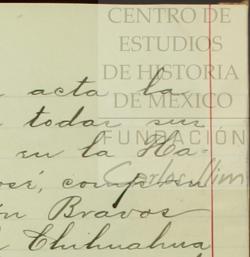 CENTRO DE
ESTUDIOS
DE HISTORIA
DE MEXICO
FUNDACIÓN
Carlos Slim
acta la
todas sus
en la Ha-
José, compren
Bravos
Chihuahua